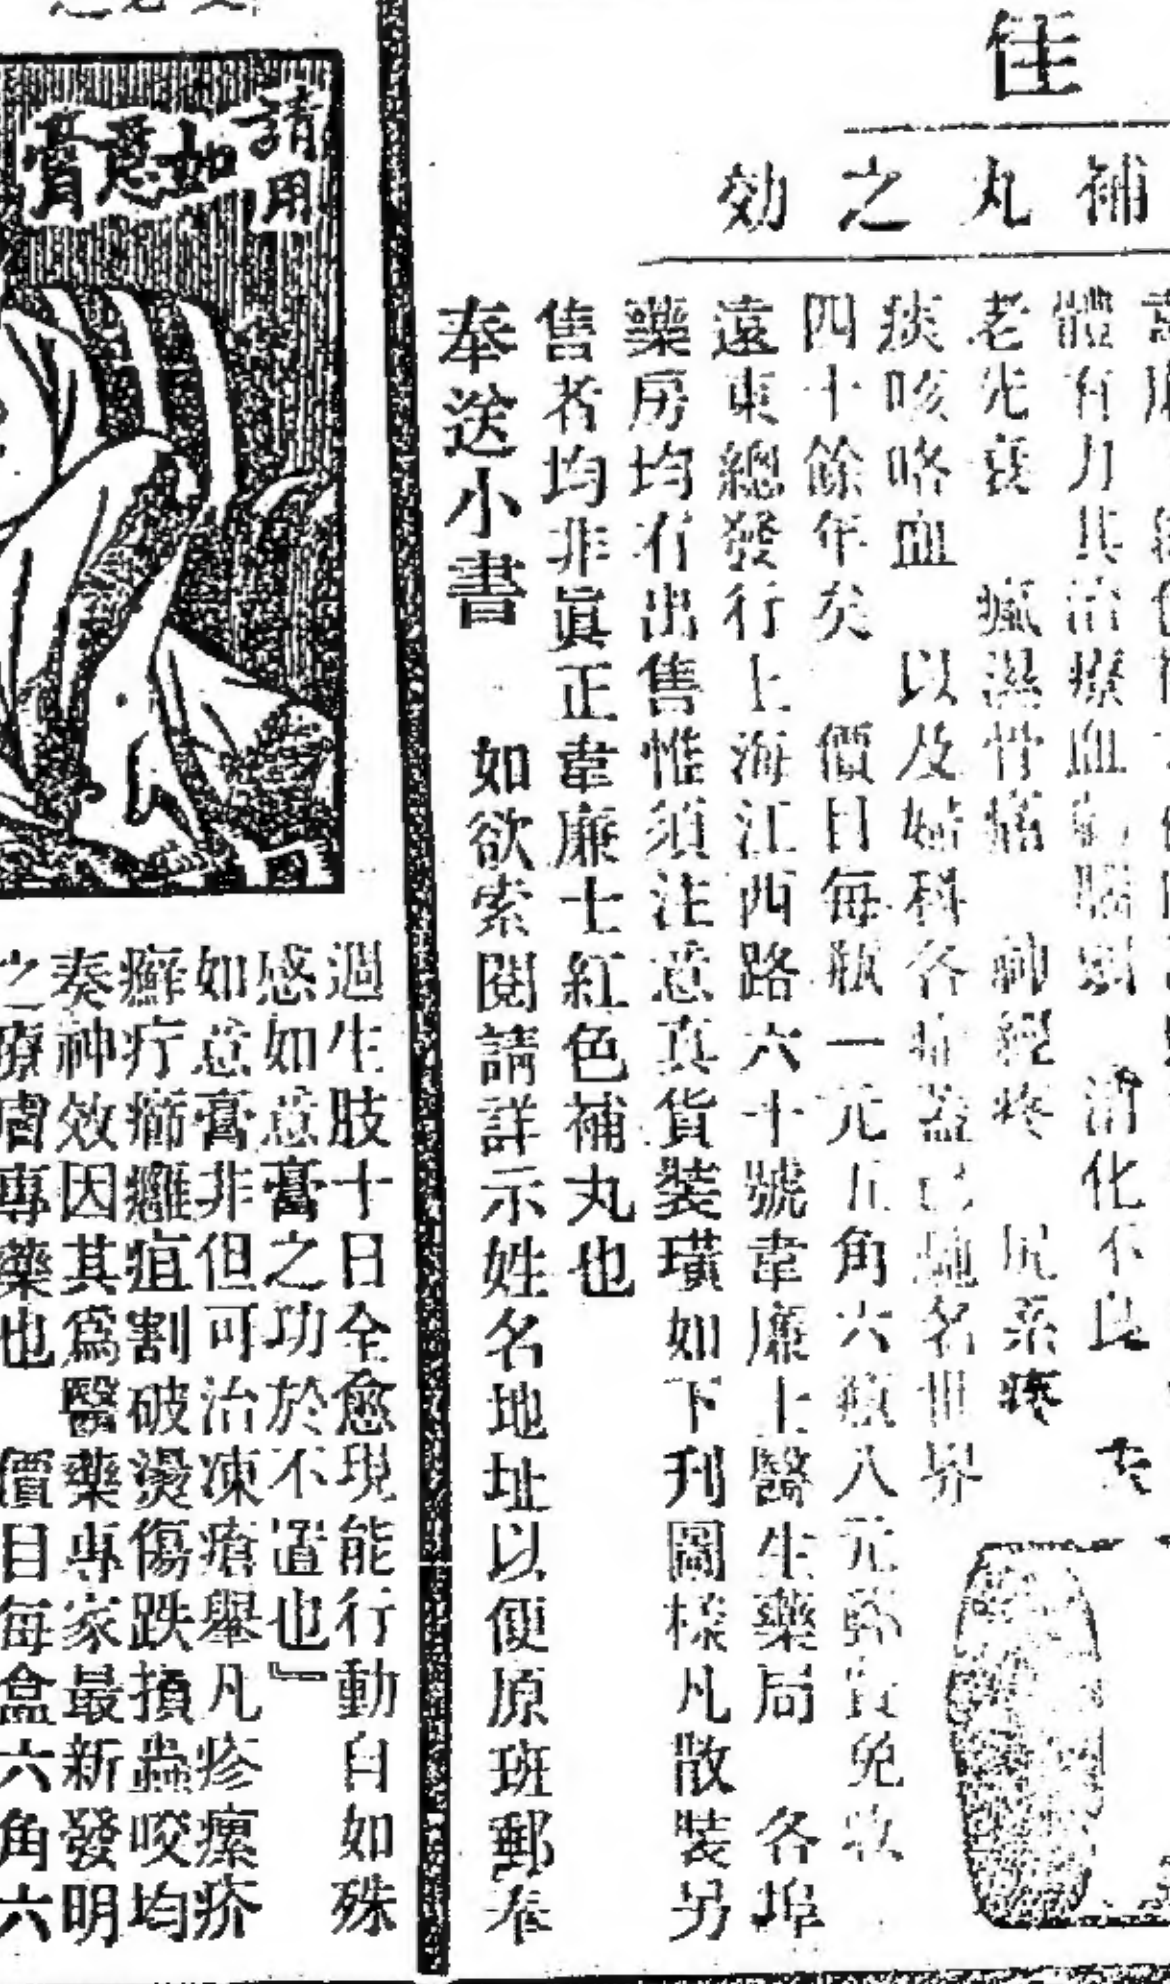 隹
補丸之効
體有力其治療血
消化不良
老先衰 瘋濕骨痛 神經疼 尻系疼
痰咳咯血 以及婦科各症蓋已馳名世界
四十餘年矣 價目每瓶一元五角六瓶八元郵費免收
遠東總發行上海江西路六十號韋廉士醫生藥局 各埠
藥房均有出售惟須注意真貨裝璜如下刋圖樣凡散裝另
售者均非眞正韋廉士紅色補丸也
奉送小書 如欲索閱請詳示姓名地址以便原班郵奉
請用
如意膏
週生肢十日全愈現能行動自如殊
感如意膏之功於不置也』
如意膏非但可治凍瘡舉凡疹瘰疥
癬疔癤癰疽割破燙傷跌損蟲咬均
奏神效因其爲醫藥專家最新發明
之療膚專藥也 價目每盒六角六